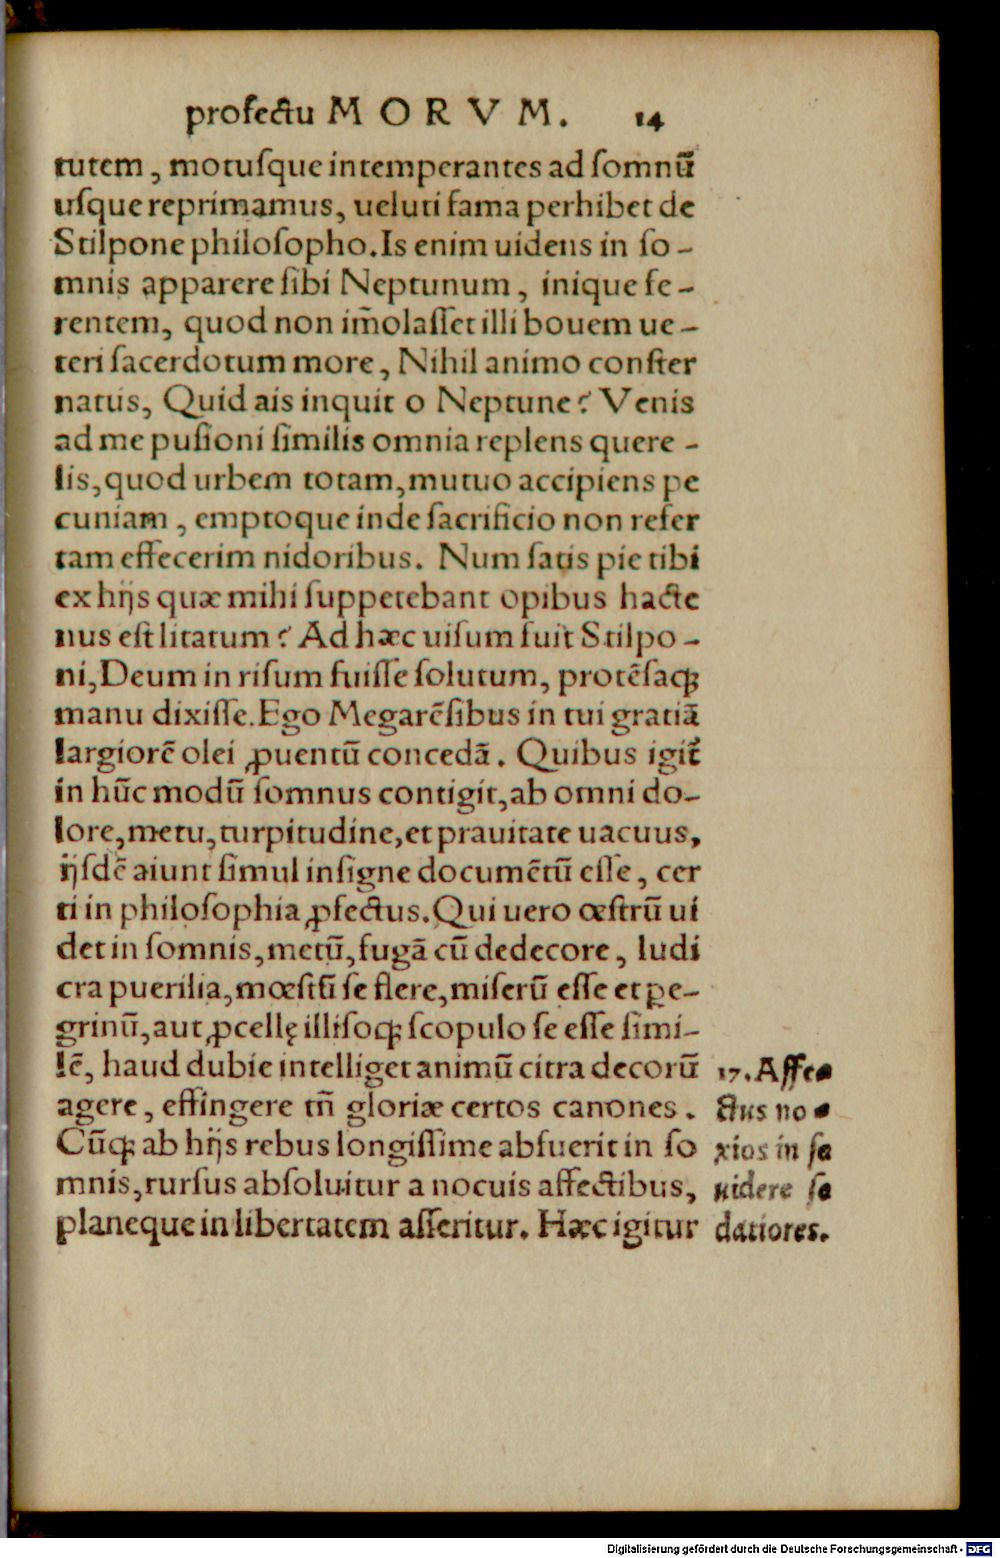 profectu MORVM. 14
tutem, motusque intemperantes ad somnū
usque reprimamus, ueluti fama perhibet de
Stilpone philosopho. Is enim uidens in so-
mnis apparere sibi Neptunum, inique fe-
rentem, quod non im̄olasset illi bouem ue-
teri sacerdotum more, Nihil animo conster
natus, Quid ais inquit o Neptune? Venis
ad me pusioni similis omnia replens quere-
lis, quod urbem totam, mutuo accipiens pe
cuniam, emptoque inde sacrificio non refer
tam effecerim nidoribus. Num satis pie tibi
ex hijs quæ mihi suppetebant opibus hacte
nus est litatum? Ad hæc uisum fuit Stilpo-
ni, Deum in risum fuisse solutum, protēsaꝙ
manu dixisse. Ego Megarēsibus in tui gratiā
largiorē olei ꝓuentū concedā. Quibus igit̄
in hūc modū somnus contigit, ab omni do-
lore, metu, turpitudine, et prauitate uacuus,
ijsdē aiunt simul insigne documētū esse, cer
ti in philosophia ꝓfectus. Qui uero œstrū ui
det in somnis, metū, fugā cū dedecore, ludi
cra puerilia, mœstū se flere, miserū esse et pe-
grinū, aut ꝓcellę illisoꝙ scopulo se esse simi-
lē, haud dubie intelliget animū citra decorū
agere, effingere tn̄ gloriæ certos canones.
Cūꝙ ab hijs rebus longissime abfuerit in so
mnis, rursus absoluitur a nocuis affectibus,
planeque in libertatem asseritur. Hæc igitur
17. Affe-
ctus no-
xios in se
uidere se
datiores.
Digitalisierung gefördert durch die Deutsche Forschungsgemeinschaft - DFG